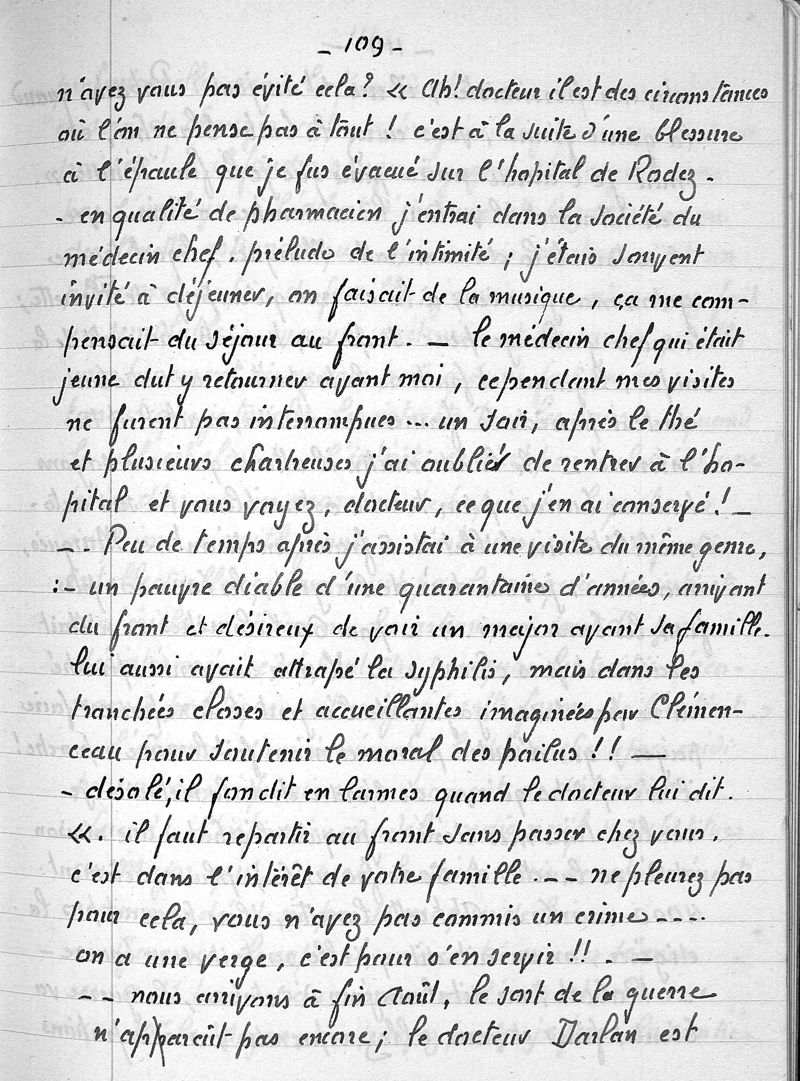 - 109 -
n'avez vous pas évité cela? « Ah! docteur il est des circonstances
où l'on ne pense pas à tout ! c'est à la suite d'une blessure
à l'épaule que je fus évacué sur l'hopital de Rodez.
- en qualité de pharmacien j'entrai dans la société du
médecin chef. prélude de l'intimité ; j'étais souvent
invité à déjeuner, on faisait de la musique, ça me com-
pensait du séjour au front. — le médecin chef qui était
jeune dut y retourner avant moi, cependant mes visites
ne furent pas interrompues... un soir, après le thé
et plusieurs chartreuses j'ai oublié de rentrer à l'ho-
pital et vous voyez, docteur, ce que j'en ai conservé ! —
—. Peu de temps après j'assistai à une visite du même genre,
:- un pauvre diable d'une quarantaine d'années, arrivant
du front et désireux de voir un major avant sa famille.
lui aussi avait attrapé la syphilis, mais dans les
tranchées closes et accueillantes imaginées par Clémen-
ceau pour soutenir le moral des poilus !! —
- désolé, il fondit en larmes quand le docteur lui dit.
«. il faut repartir au front sans passer chez vous.
c'est dans l'intérêt de votre famille. -- ne pleurez pas
pour cela, vous n'avez pas commis un crime ----
on a une verge, c'est pour s'en servir !!. —
-- nous arrivons à fin Août, le sort de la guerre
n'apparaît pas encore ; le docteur Darlan est